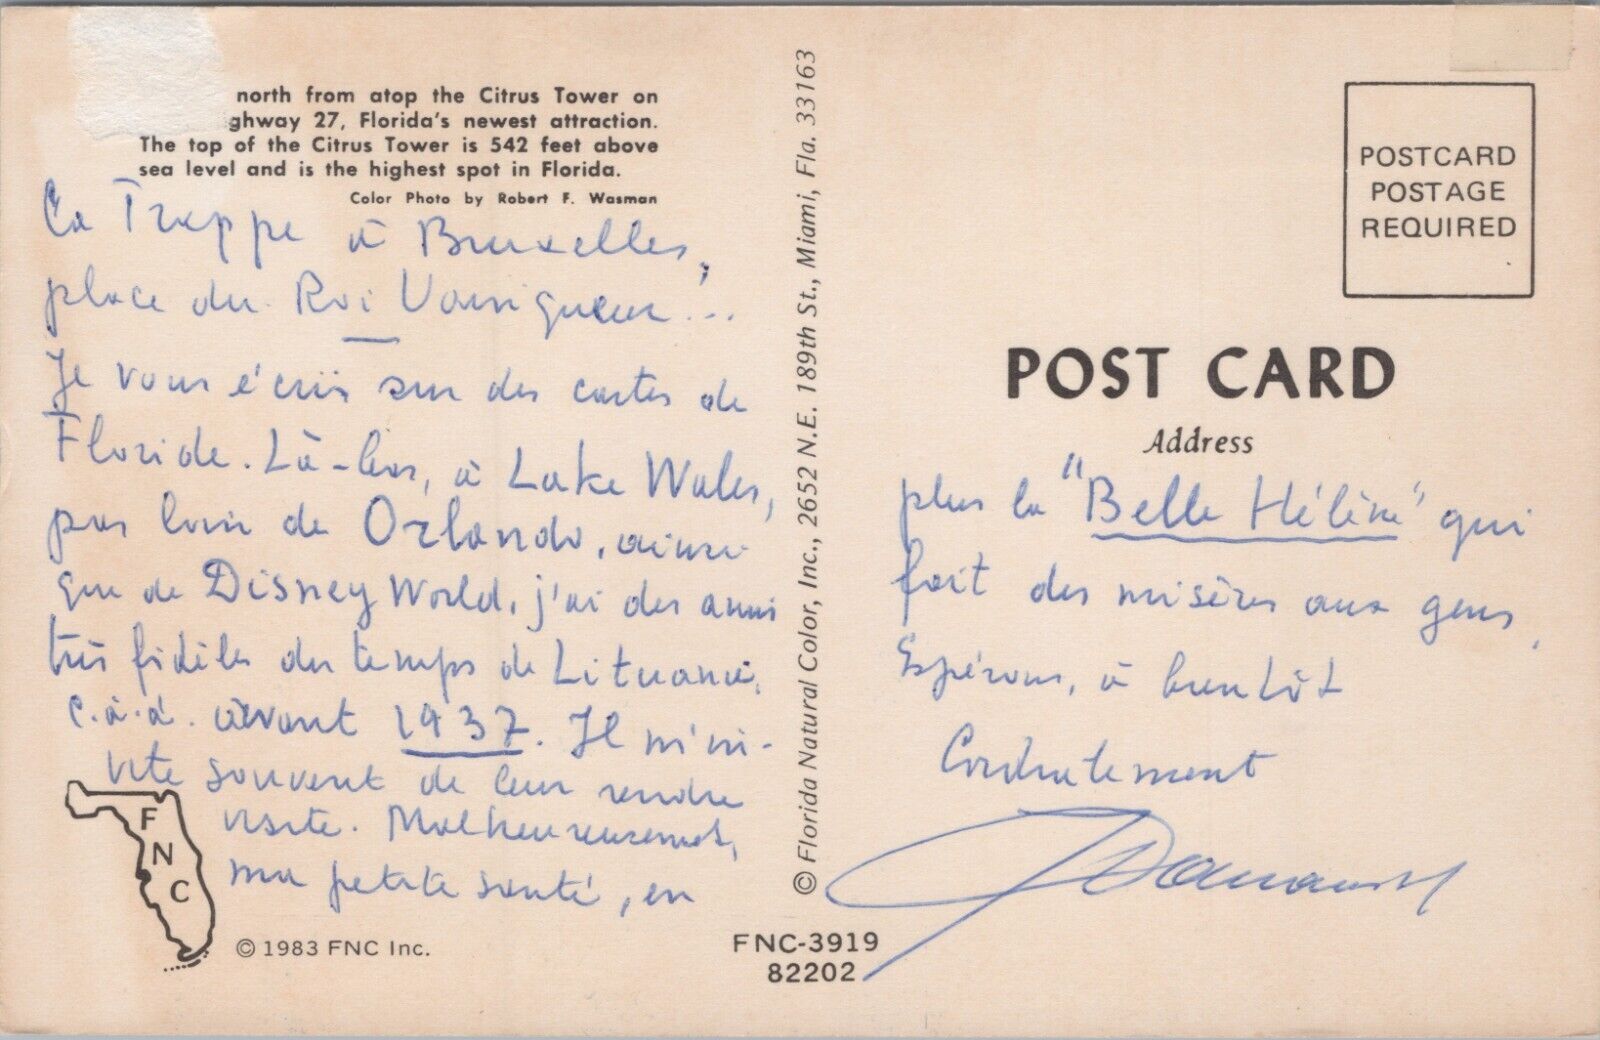 north from atop the Citrus Tower on
ghway 27, Florida's newest attraction.
The top of the Citrus Tower is 542 feet above
sea level and is the highest spot in Florida.
Color Photo by Robert F. Wasman
La Trappe à Bruxelles,
place du Roi Vainqueur!..
Je vous écris sur des cartes de
Floride. Là-bas, à Lake Wales,
pas loin de Orlando, ainsi
que de Disney World, j'ai des amis
très fidèles du temps de Lituanie,
c.à.d. avant 1937. Il m'in-
vite souvent de leur rendre
visite. Malheureusement,
ma petite santé, en
© 1983 FNC Inc.
F
N
C
© Florida Natural Color, Inc., 2652 N.E. 189th St., Miami, Fla. 33163
FNC-3919
82202
POSTCARD
POSTAGE
REQUIRED
POST CARD
Address
plus la "Belle Hélène" qui
fait des misères aux gens,
Espérons, à bientôt
Cordialement